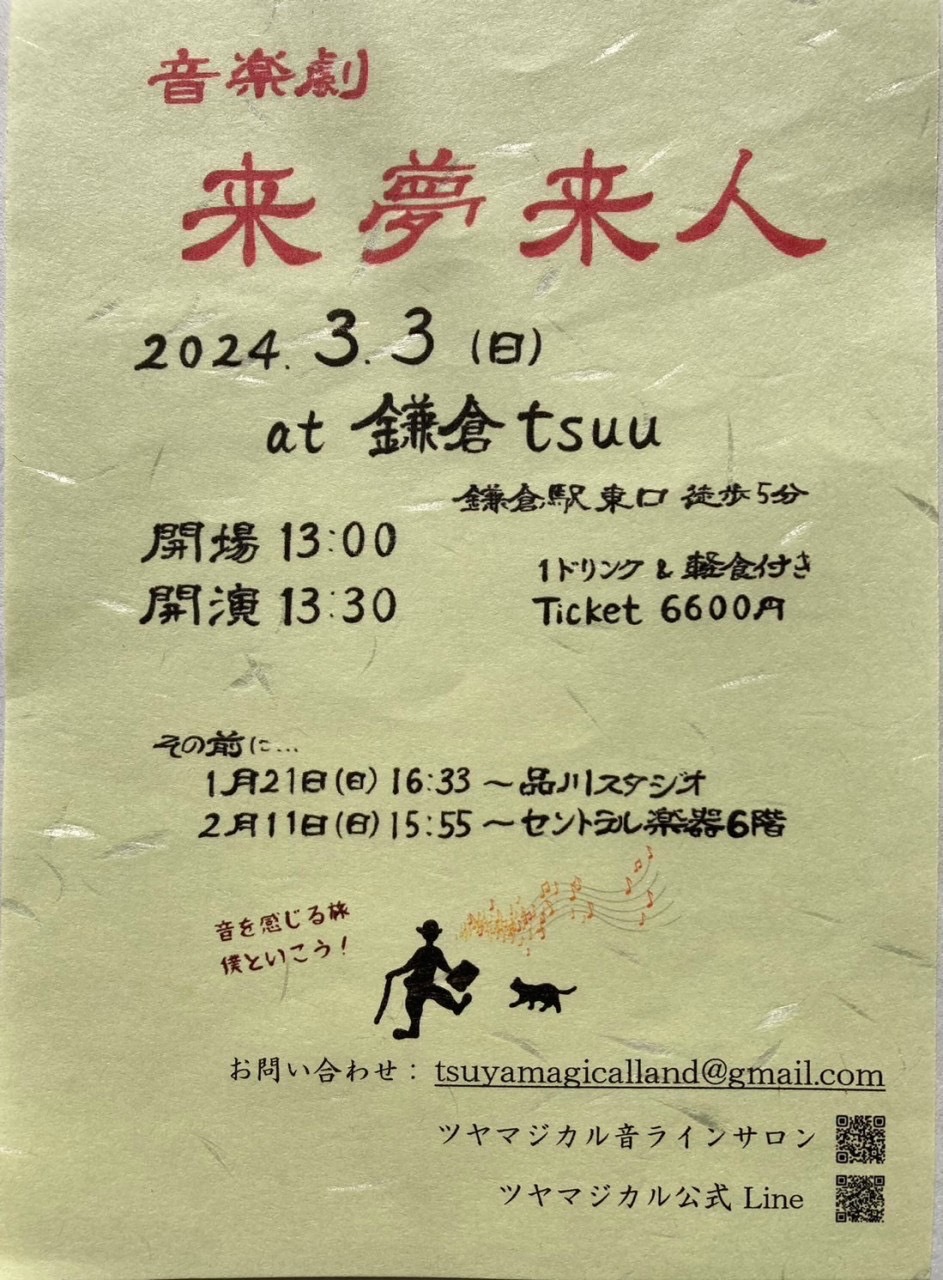 音楽劇
来夢来人
2024. 3. 3 (日)
at 鎌倉 tsuu
鎌倉駅 東口 徒歩5分
開場 13:00
1ドリンク & 軽食付き
開演 13:30
Ticket 6600円
その前に...
1月21日(日) 16:33 ~ 品川スタジオ
2月11日(日) 15:55 ~ セントラル楽器6階
音を感じる旅
僕といこう!
お問い合わせ: tsuyamagicalland@gmail.com
ツヤマジカル音ラインサロン
ツヤマジカル公式 Line